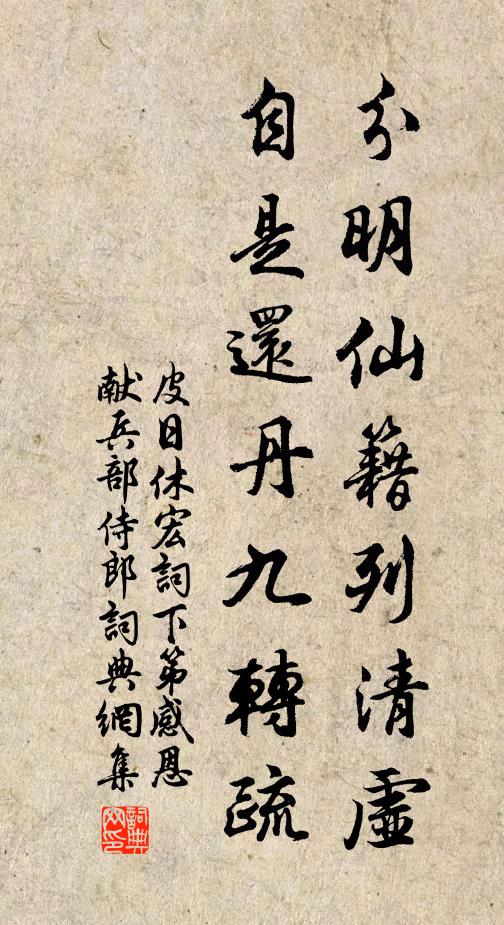 分明仙籍列清虛
自是還丹九轉疏
皮日休宏詞下第感恩
献兵部侍郎詞典網集
詞典网印